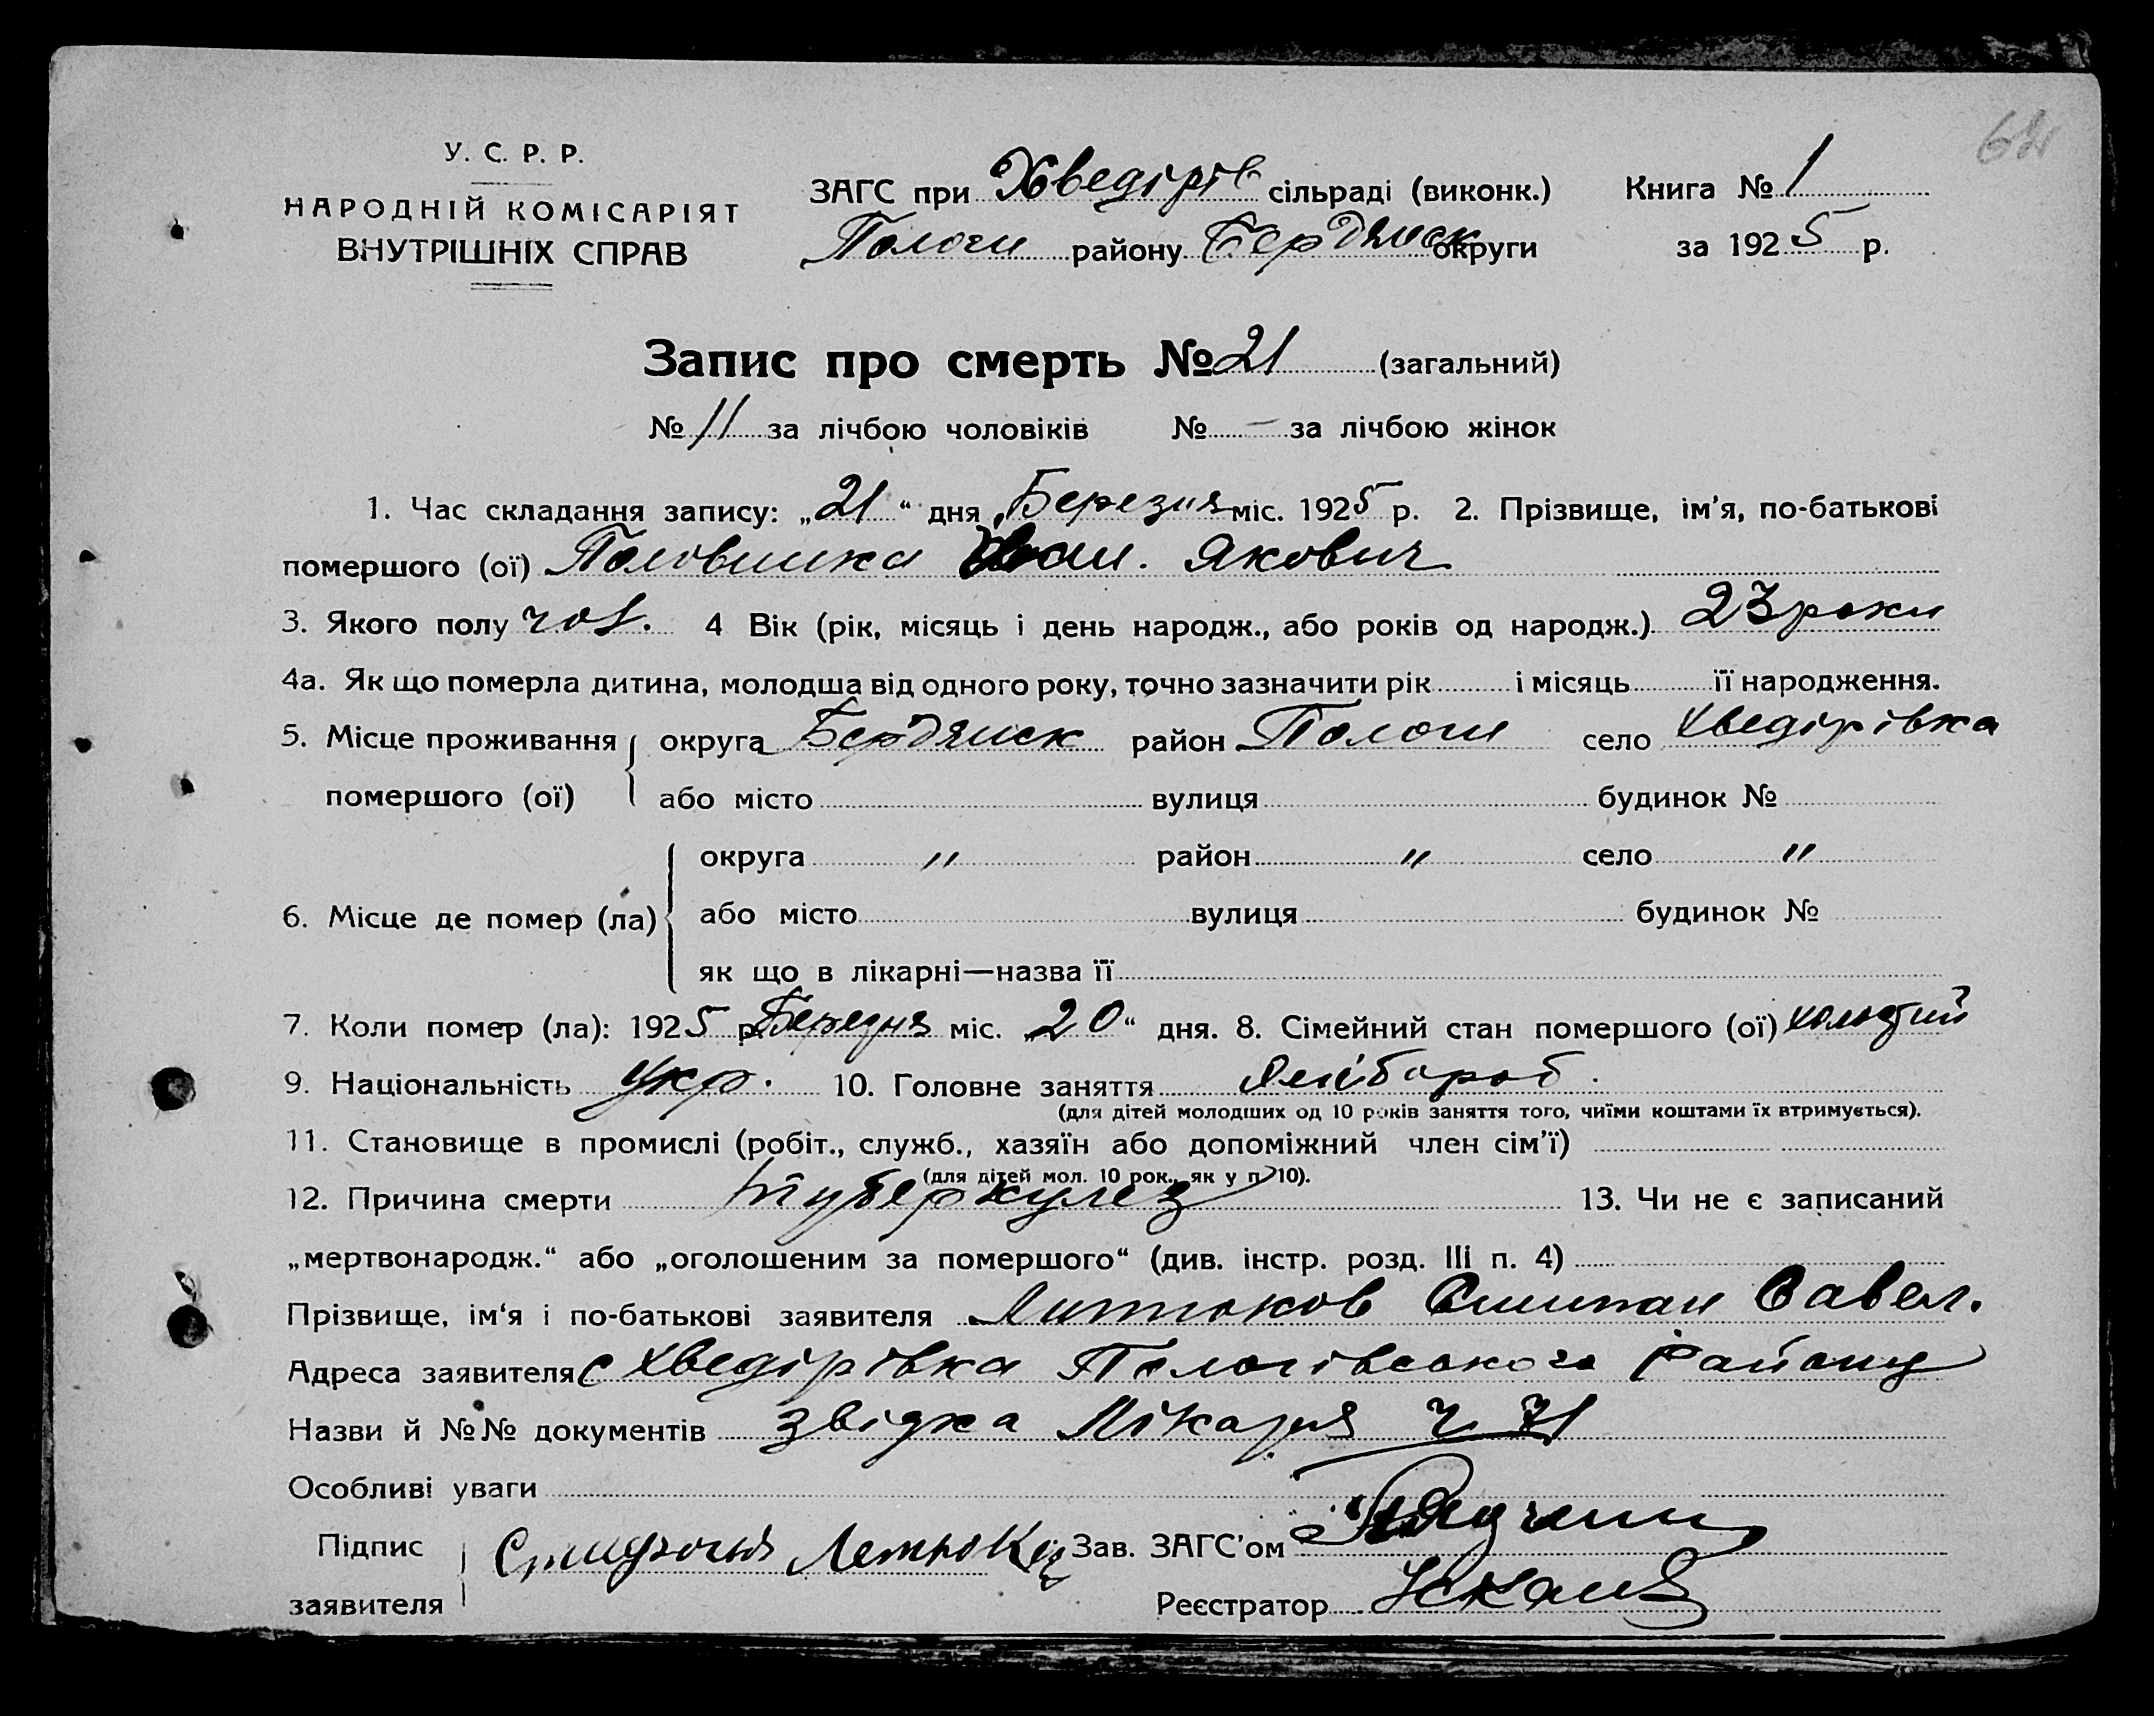 64
У. С. Р. Р.
НАРОДНІЙ КОМІСАРІЯТ
ВНУТРІШНІХ СПРАВ
ЗАГС при Хведірів сільраді (виконк.) Книга № 1
Пологи району Бердянск округи за 1925 р.
Запис про смерть № 21 (загальний)
№ 11 за лічбою чоловіків № - за лічбою жінок
1. Час складання запису: „21“ дня Березня міс. 1925 р. 2. Прізвище, ім'я, по-батькові
помершого (ої) Половинка Іван. Якович
3. Якого полу чол. 4 Вік (рік, місяць і день народж., або років од народж.) 23 роки
4а. Як що померла дитина, молодша від одного року, точно зазначити рік і місяць її народження.
5. Місце проживання округа Бердянск район Пологи село Хведірівка
помершого (ої) або місто вулиця будинок №
округа " район " село "
6. Місце де помер (ла) або місто вулиця будинок №
як що в лікарні—назва її
7. Коли помер (ла): 1925 р. Березня міс. „20“ дня. 8. Сімейний стан помершого (ої) холостий
9. Національність укр. 10. Головне заняття
(для дітей молодших од 10 років заняття того, чиїми коштами їх втримується).
11. Становище в промислі (робіт., служб., хазяїн або допоміжний член сім'ї)
(для дітей мол. 10 рок., як у п. 10).
12. Причина смерти туберкулез 13. Чи не є записаний
„мертвонародж.“ або „оголошеним за помершого“ (див. інстр. розд. III п. 4)
Прізвище, ім'я і по-батькові заявителя Савел.
Адреса заявителя с Хведірівка Пологівського Району
Назви й №№ документів звідка Лікаря ч 71
Особливі уваги
Підпис Зав. ЗАГС'ом
заявителя Реєстратор